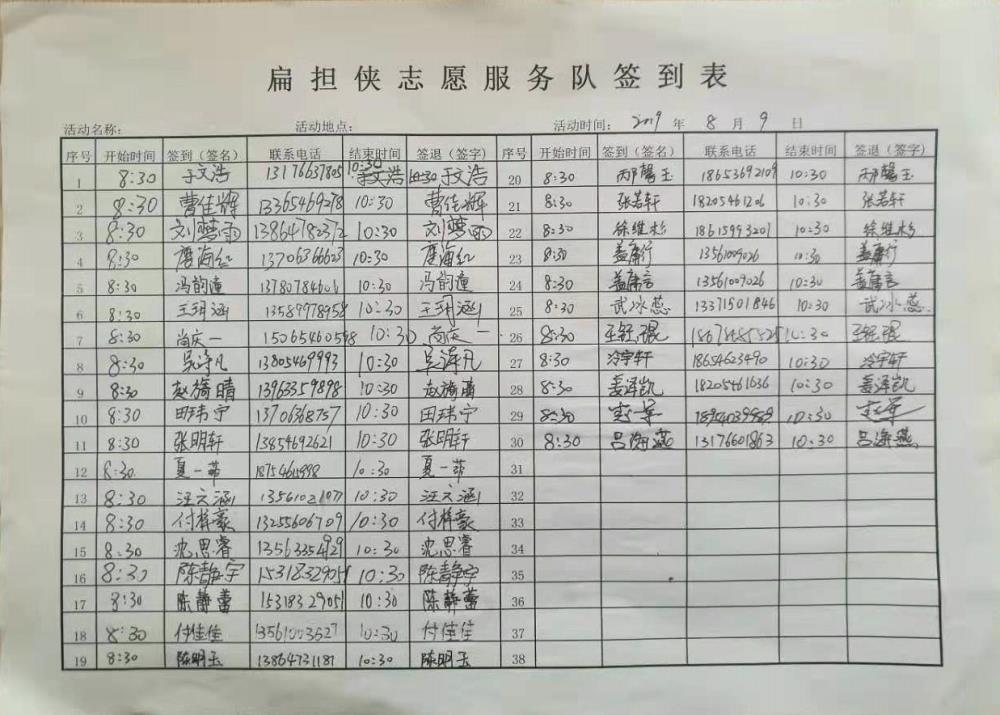 扁担侠志愿服务队签到表
活动名称： 活动地点： 活动时间： 2019 年 8 月 9 日
序号 开始时间 签到（签名） 联系电话 结束时间 签退（签字） 序号 开始时间 签到（签名） 联系电话 结束时间 签退（签字）
1 8:30 于文浩 13176637805 10:30 于文浩 10:30 于文浩 20 8:30 邴馨玉 18653692109 10:30 邴馨玉
2 8:30 曹佳辉 13365469278 10:30 曹佳辉 21 8:30 张若轩 18205461206 10:30 张若轩
3 8:30 刘梦雨 13864782372 10:30 刘梦雨 22 8:30 徐维杉 18615993201 10:30 徐维杉
4 8:30 唐海红 13706366623 10:30 唐海红 23 8:30 盖庸行 13561009026 10:30 盖庸行
5 8:30 冯韵潼 13780784606 10:30 冯韵潼 24 8:30 盖庸言 13561009026 10:30 盖庸言
6 8:30 王珂涵 13589978958 10:30 王珂涵 25 8:30 武冰蕊 13371501846 10:30 武冰蕊
7 8:30 尚庆一 15065460558 10:30 尚庆一 26 8:30 10:30
8 8:30 吴泽凡 13805469993 10:30 吴泽凡 27 8:30 冷宇轩 18654623490 10:30 冷宇轩
9 8:30 赵旖晴 13963559898 10:30 赵旖晴 28 8:30 姜泽凯 18205461636 10:30 姜泽凯
10 8:30 田玮宁 13706368757 10:30 田玮宁 29 8:30 18954039989 10:30
11 8:30 张明轩 13854692621 10:30 张明轩 30 8:30 吕海燕 13176601863 10:30 吕海燕
12 8:30 夏一茆 10:30 夏一茆 31
13 8:30 汪六涵 13561021077 10:30 汪六涵 32
14 8:30 付梓豪 13255606709 10:30 付梓豪 33
15 8:30 沈思睿 13563354929 10:30 沈思睿 34
16 8:30 陈静宇 15318329051 10:30 陈静宇 35
17 8:30 陈静蕾 15318329051 10:30 陈静蕾 36
18 8:30 付佳佳 13561003627 10:30 付佳佳 37
19 8:30 陈明玉 13864731187 10:30 陈明玉 38